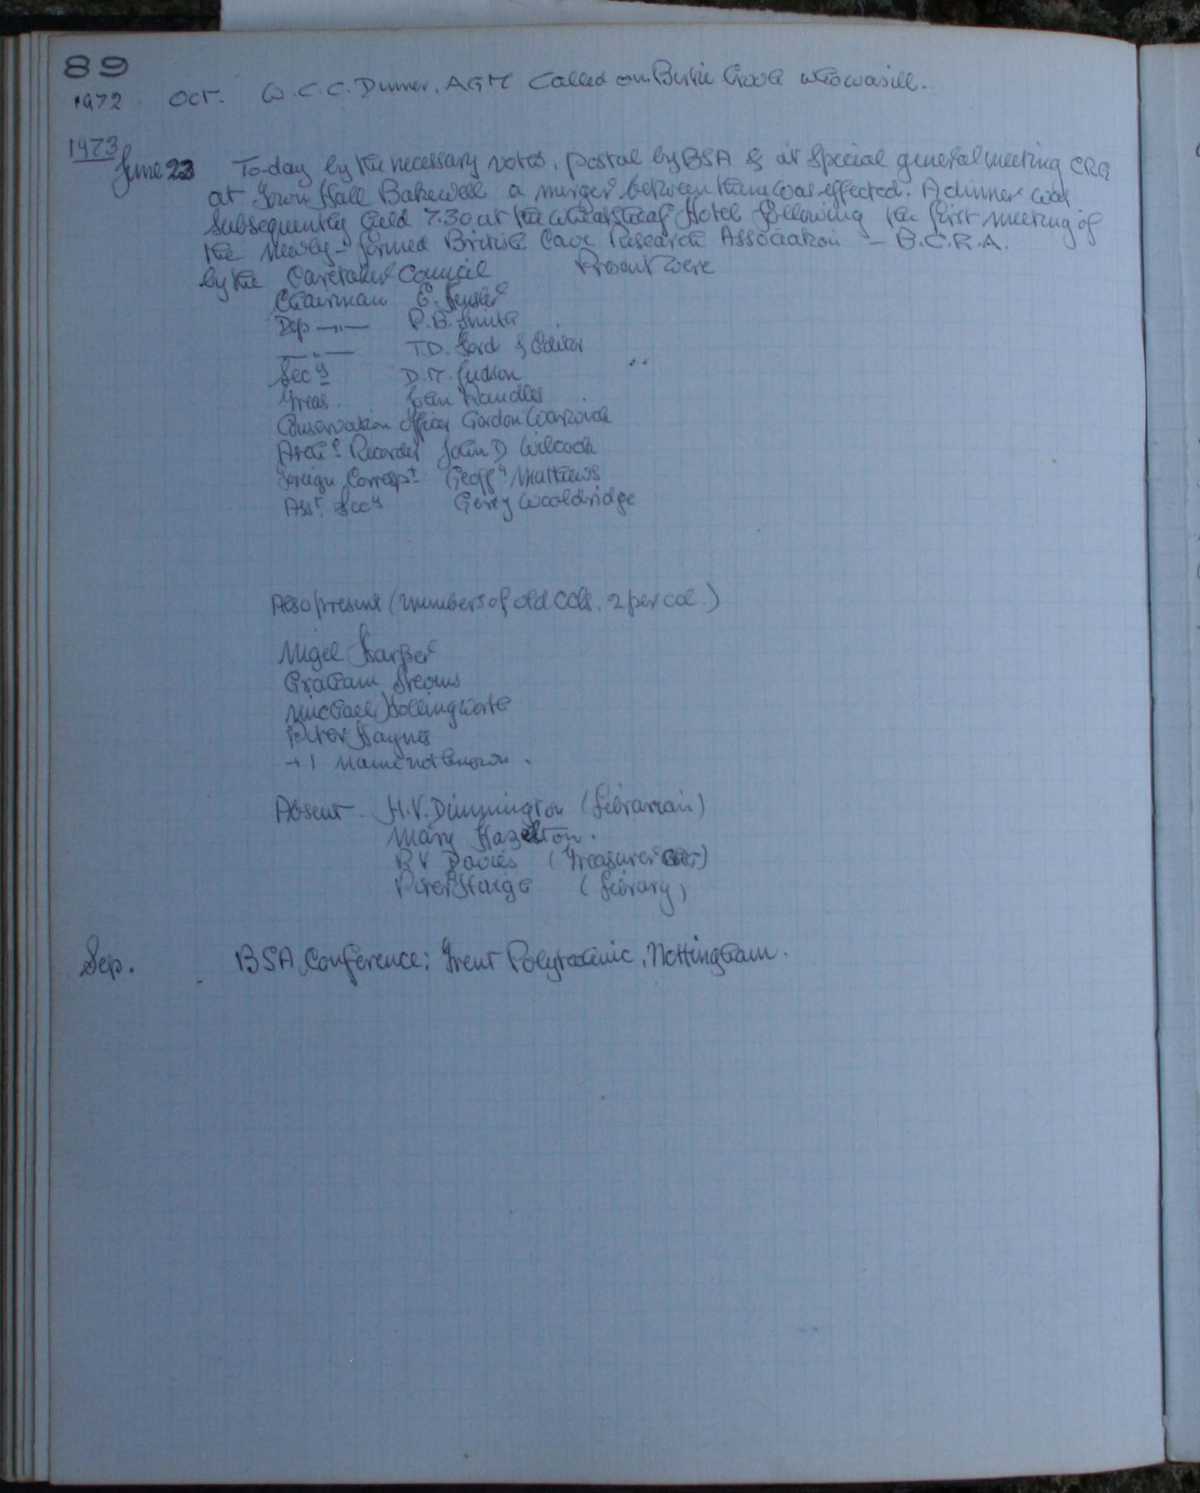 89
1972 Oct. W.C.C. Dinner, AGM Called on Bertie who was ill.
1973
June 23 To-day by the necessary votes, postal by BSA & at special general meeting CRG
at Town Hall Bakewell a merger between them was effected. A dinner was
subsequently held 7.30 at the Wheatsheaf Hotel following the first meeting of
the newly-formed British Cave Research Association — B.C.R.A.
by the Caretaker Council Present were
Chairman
Dep —"— P.B. Smith
—"— T.D. Ford & Editor
Secy D.M. Judson
Treas.
Conservation Officer Gordon Warwick
Recorder John D Wilcock
Foreign Corresp^t Geoffy Matthews
Ass^t Secy Gerry Wooldridge
Also present (members of old Cols, 2 per col.)
Nigel Harper
Graham Stevens
Michael Hollingworth
Peter Haynes
+ 1 name not known.
Absent H.V. Dunnington (Librarian)
Mary Hazelton.
R V Davies (Treasurer)
Peter Haigh (Library)
Sep. BSA Conference; Trent Polytechnic, Nottingham.